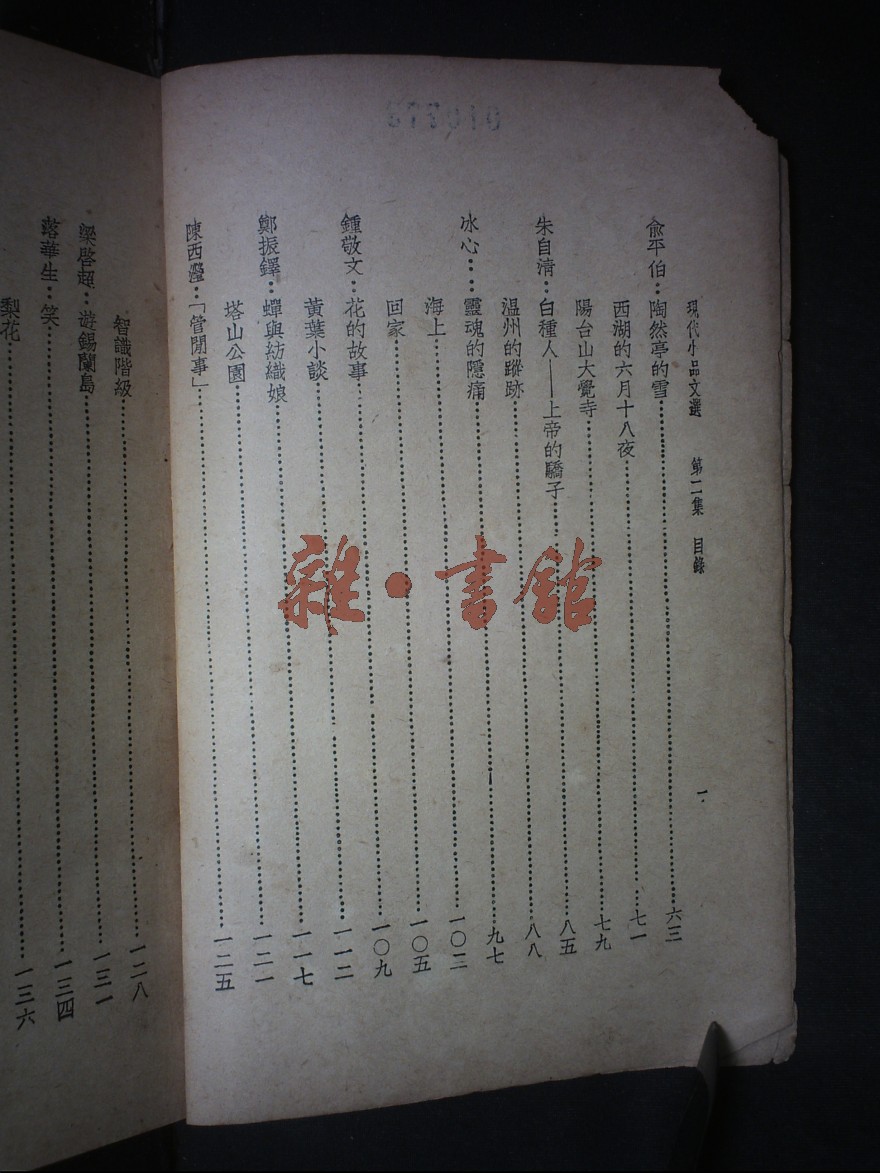 現代小品文選 第二集 目錄 一
俞平伯：陶然亭的雪……六三
西湖的六月十八夜……七一
陽台山大覺寺……七九
朱自清：白種人——上帝的驕子……八五
温州的蹤跡……八八
冰心：靈魂的隱痛……九七
海上……一〇二
回家……一〇五
鍾敬文：花的故事……一〇九
黃葉小談……一一二
鄭振鐸：蟬與紡織娘……一一七
塔山公園……一二一
陳西瀅：「管閒事」……一二五
智識階級……一二八
梁啓超：遊錫蘭島……一三一
落華生：笑……一三四
梨花……一三六
雜·書館